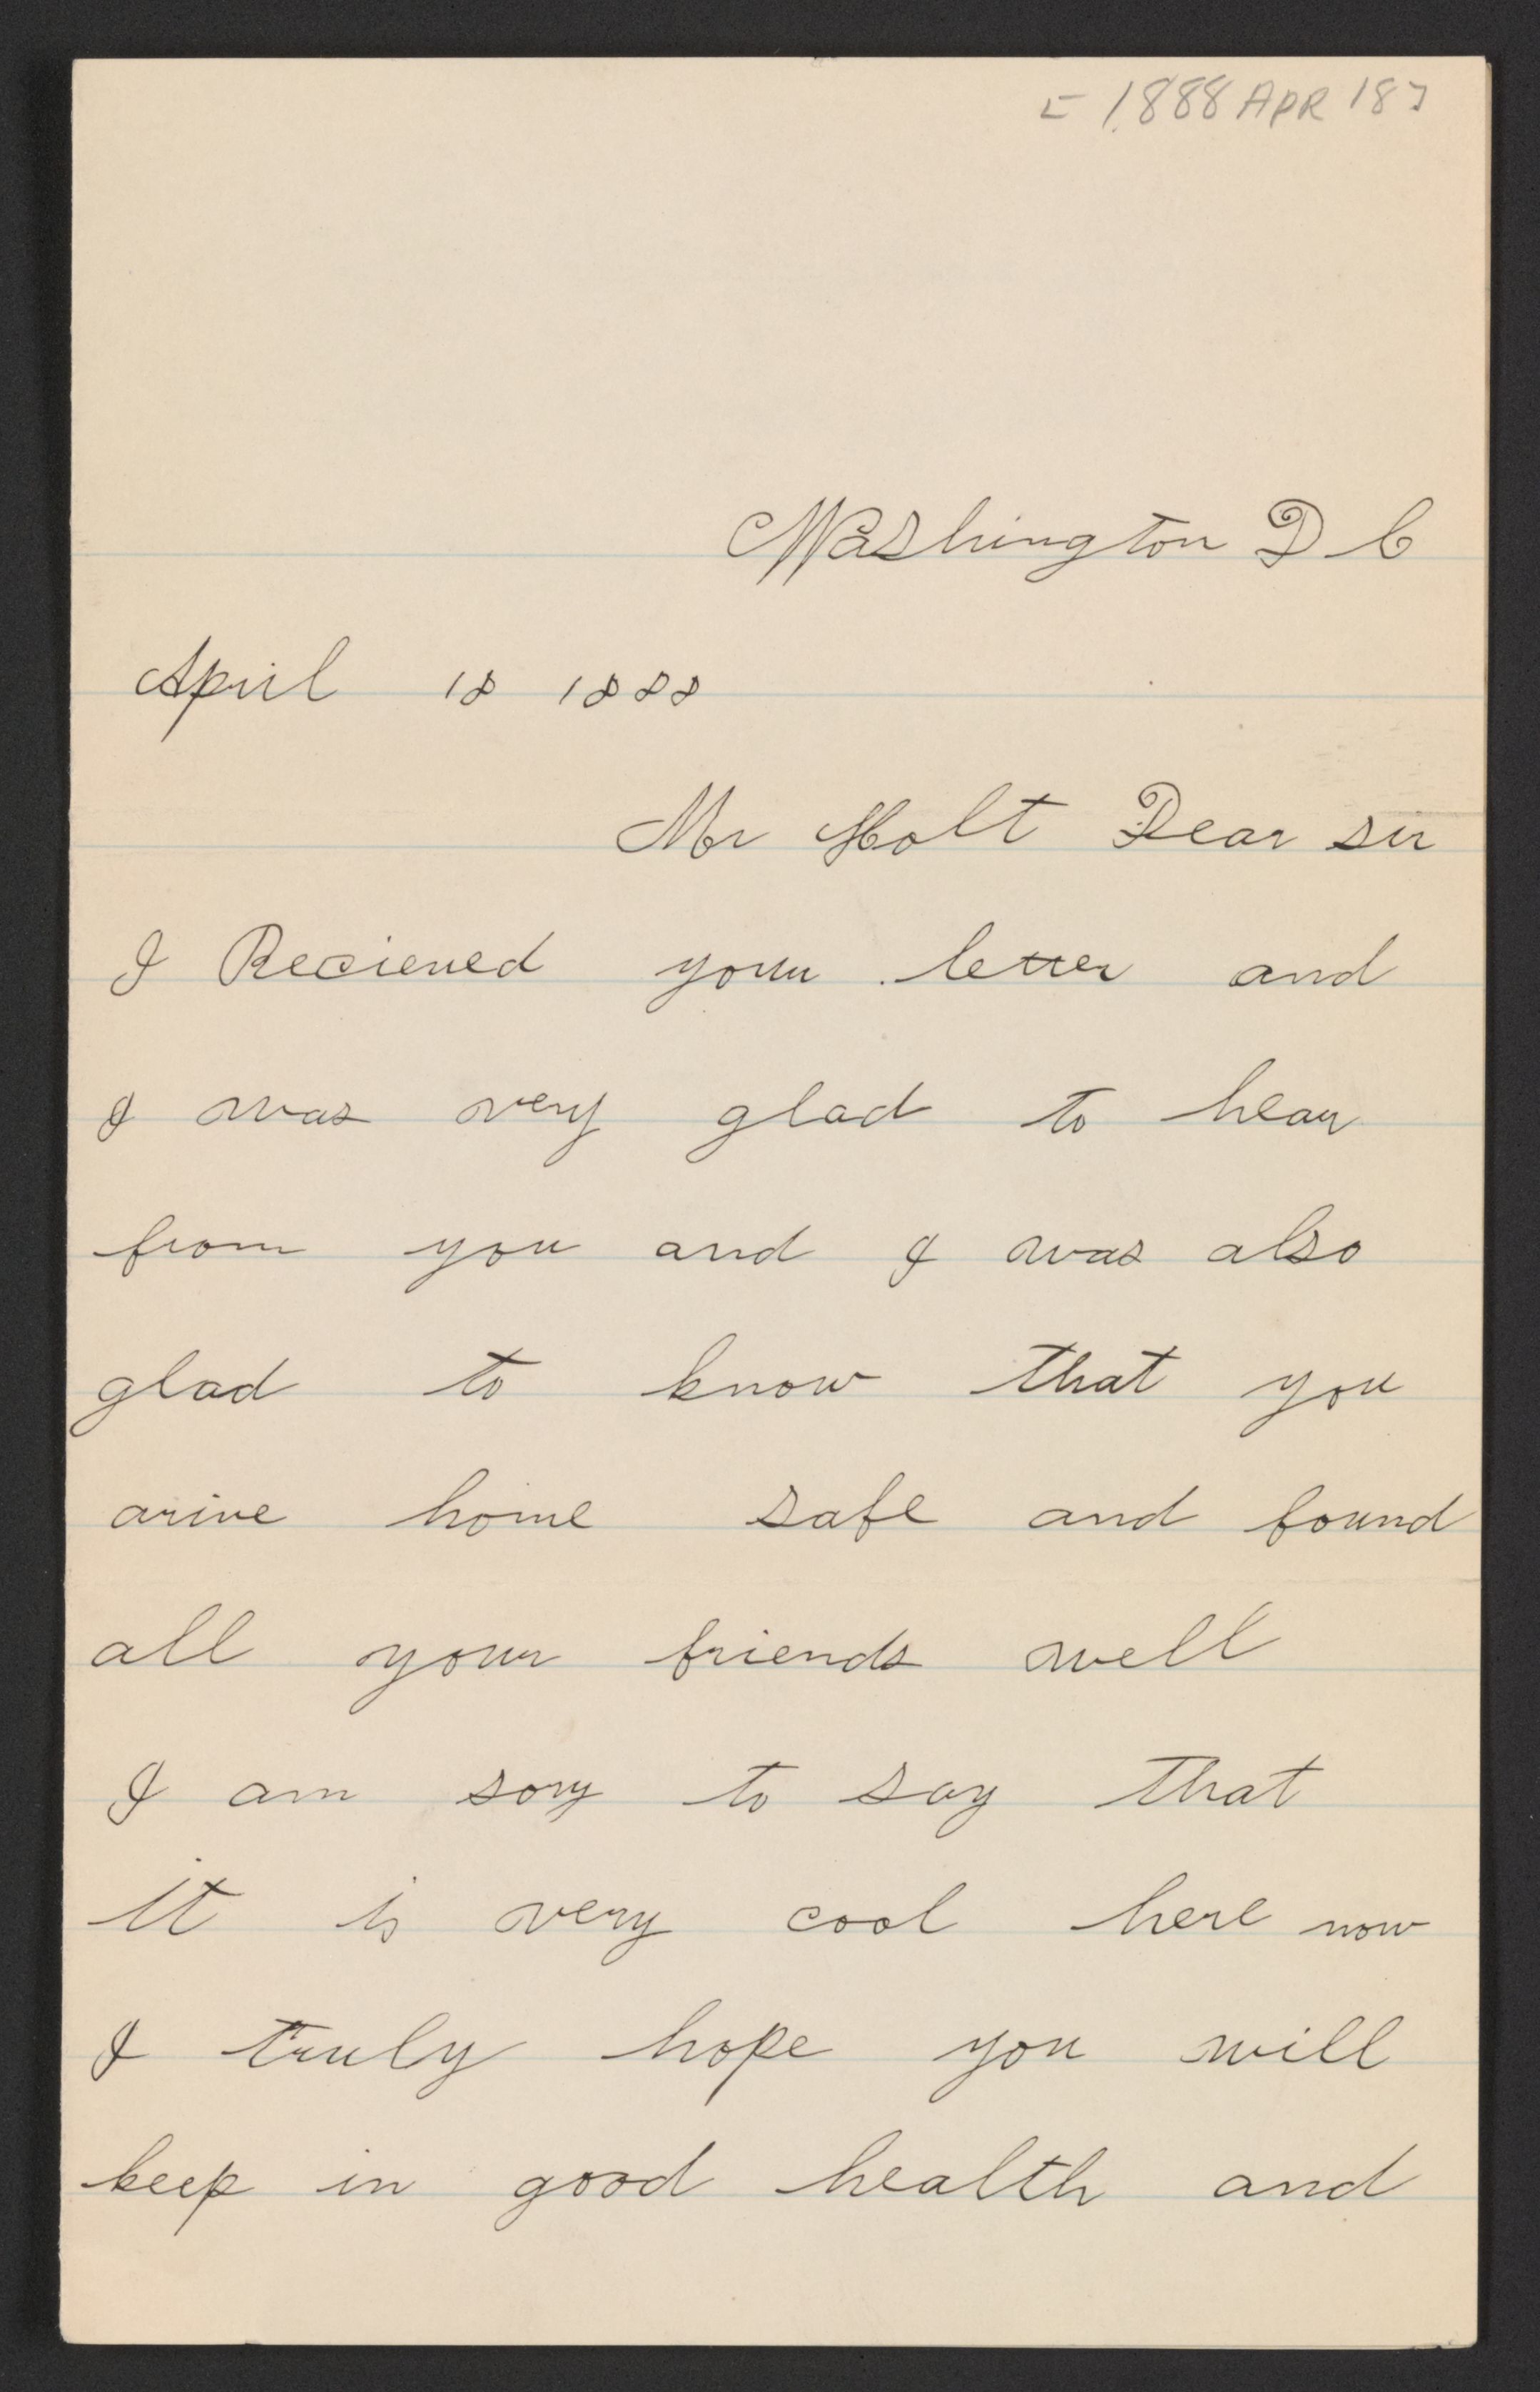 [1888 APR 18]
Washington D C
April 18 1888
Mr Holt Dear sir
I Recieved your letter and
I was very glad to hear
from you and I was also
glad to know that you
arive home safe and found
all your friends well
I am sory to say that
it is very cool here now
I truly hope you will
keep in good health and